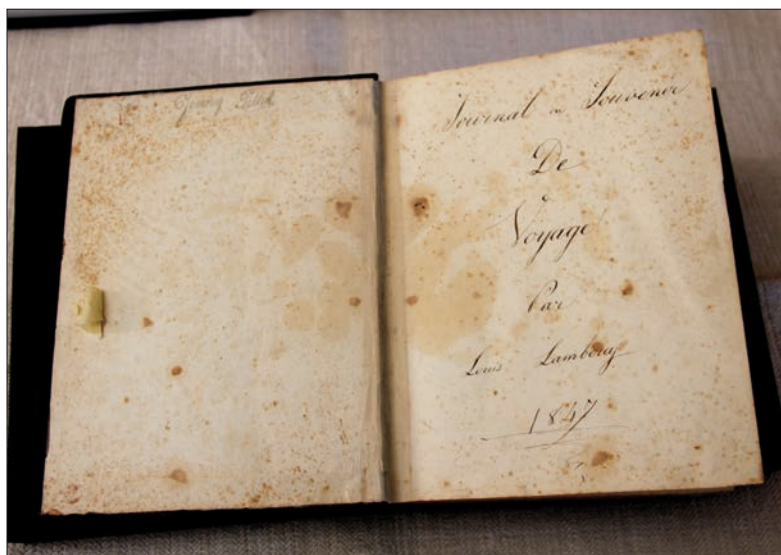 Journal ou Souvenir
De
Voyage
Par
Louis
1847